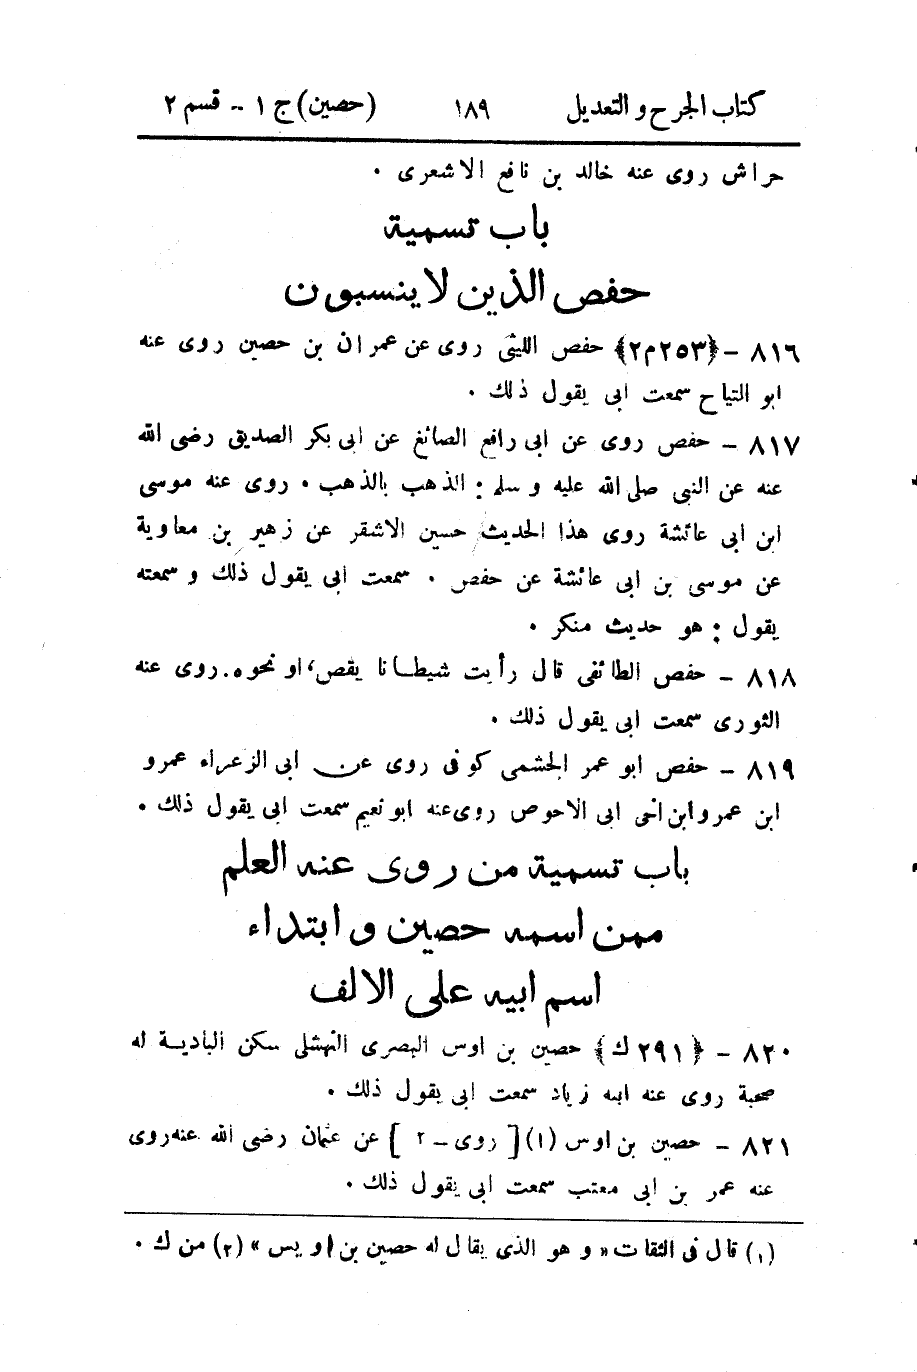 كتاب الجرح و التعديل ١٨٩ (حصين) ج ١ -- قسم ٢
حراش روى عنه خالد بن نافع الاشعرى ٠
باب تسمية
حفص الذين لا ينسبون
٨١٦ - ﴿٢٥٣م٢﴾ حفص الليثى روى عن عمران بن حصين روى عنه
ابو التياح سمعت ابى يقول ذلك ٠
٨١٧ - حفص روى عن ابى رافع الصائغ عن ابى بكر الصديق رضى الله
عنه عن النبى صلى الله عليه و سلم : الذهب بالذهب ٠ روى عنه موسى
ابن ابى عائشة روى هذا الحديث حسين الاشقر عن زهير بن معاوية
عن موسى بن ابى عائشة عن حفص ٠ سمعت ابى يقول ذلك و سمعته
يقول : هو حديث منكر ٠
٨١٨ - حفص الطائفى قال رأيت شيطانا يقص، او نحوه. روى عنه
الثورى سمعت ابى يقول ذلك ٠
٨١٩ - حفص ابو عمر الجشمى كوفى روى عن ابى الزعراء عمرو
ابن عمرو ابن اخى ابى الاحوص روى عنه ابو نعيم سمعت ابى يقول ذلك ٠
باب تسمية من روى عنه العلم
ممن اسمه حصين و ابتداء
اسم ابيه على الالف
٨٢٠ - ﴿٢٩١ ك﴾ حصين بن اوس البصرى النهشلى سكن البادية له
صحبة روى عنه ابنه زياد سمعت ابى يقول ذلك ٠
٨٢١ - حصين بن اوس (١) [روى - ٢] عن عثمان رضى الله عنه روى
عنه عمر بن ابى معتب سمعت ابى يقول ذلك ٠
(١) قال فى الثقات « و هو الذى يقال له حصين بن اويس » (٢) من ك ٠